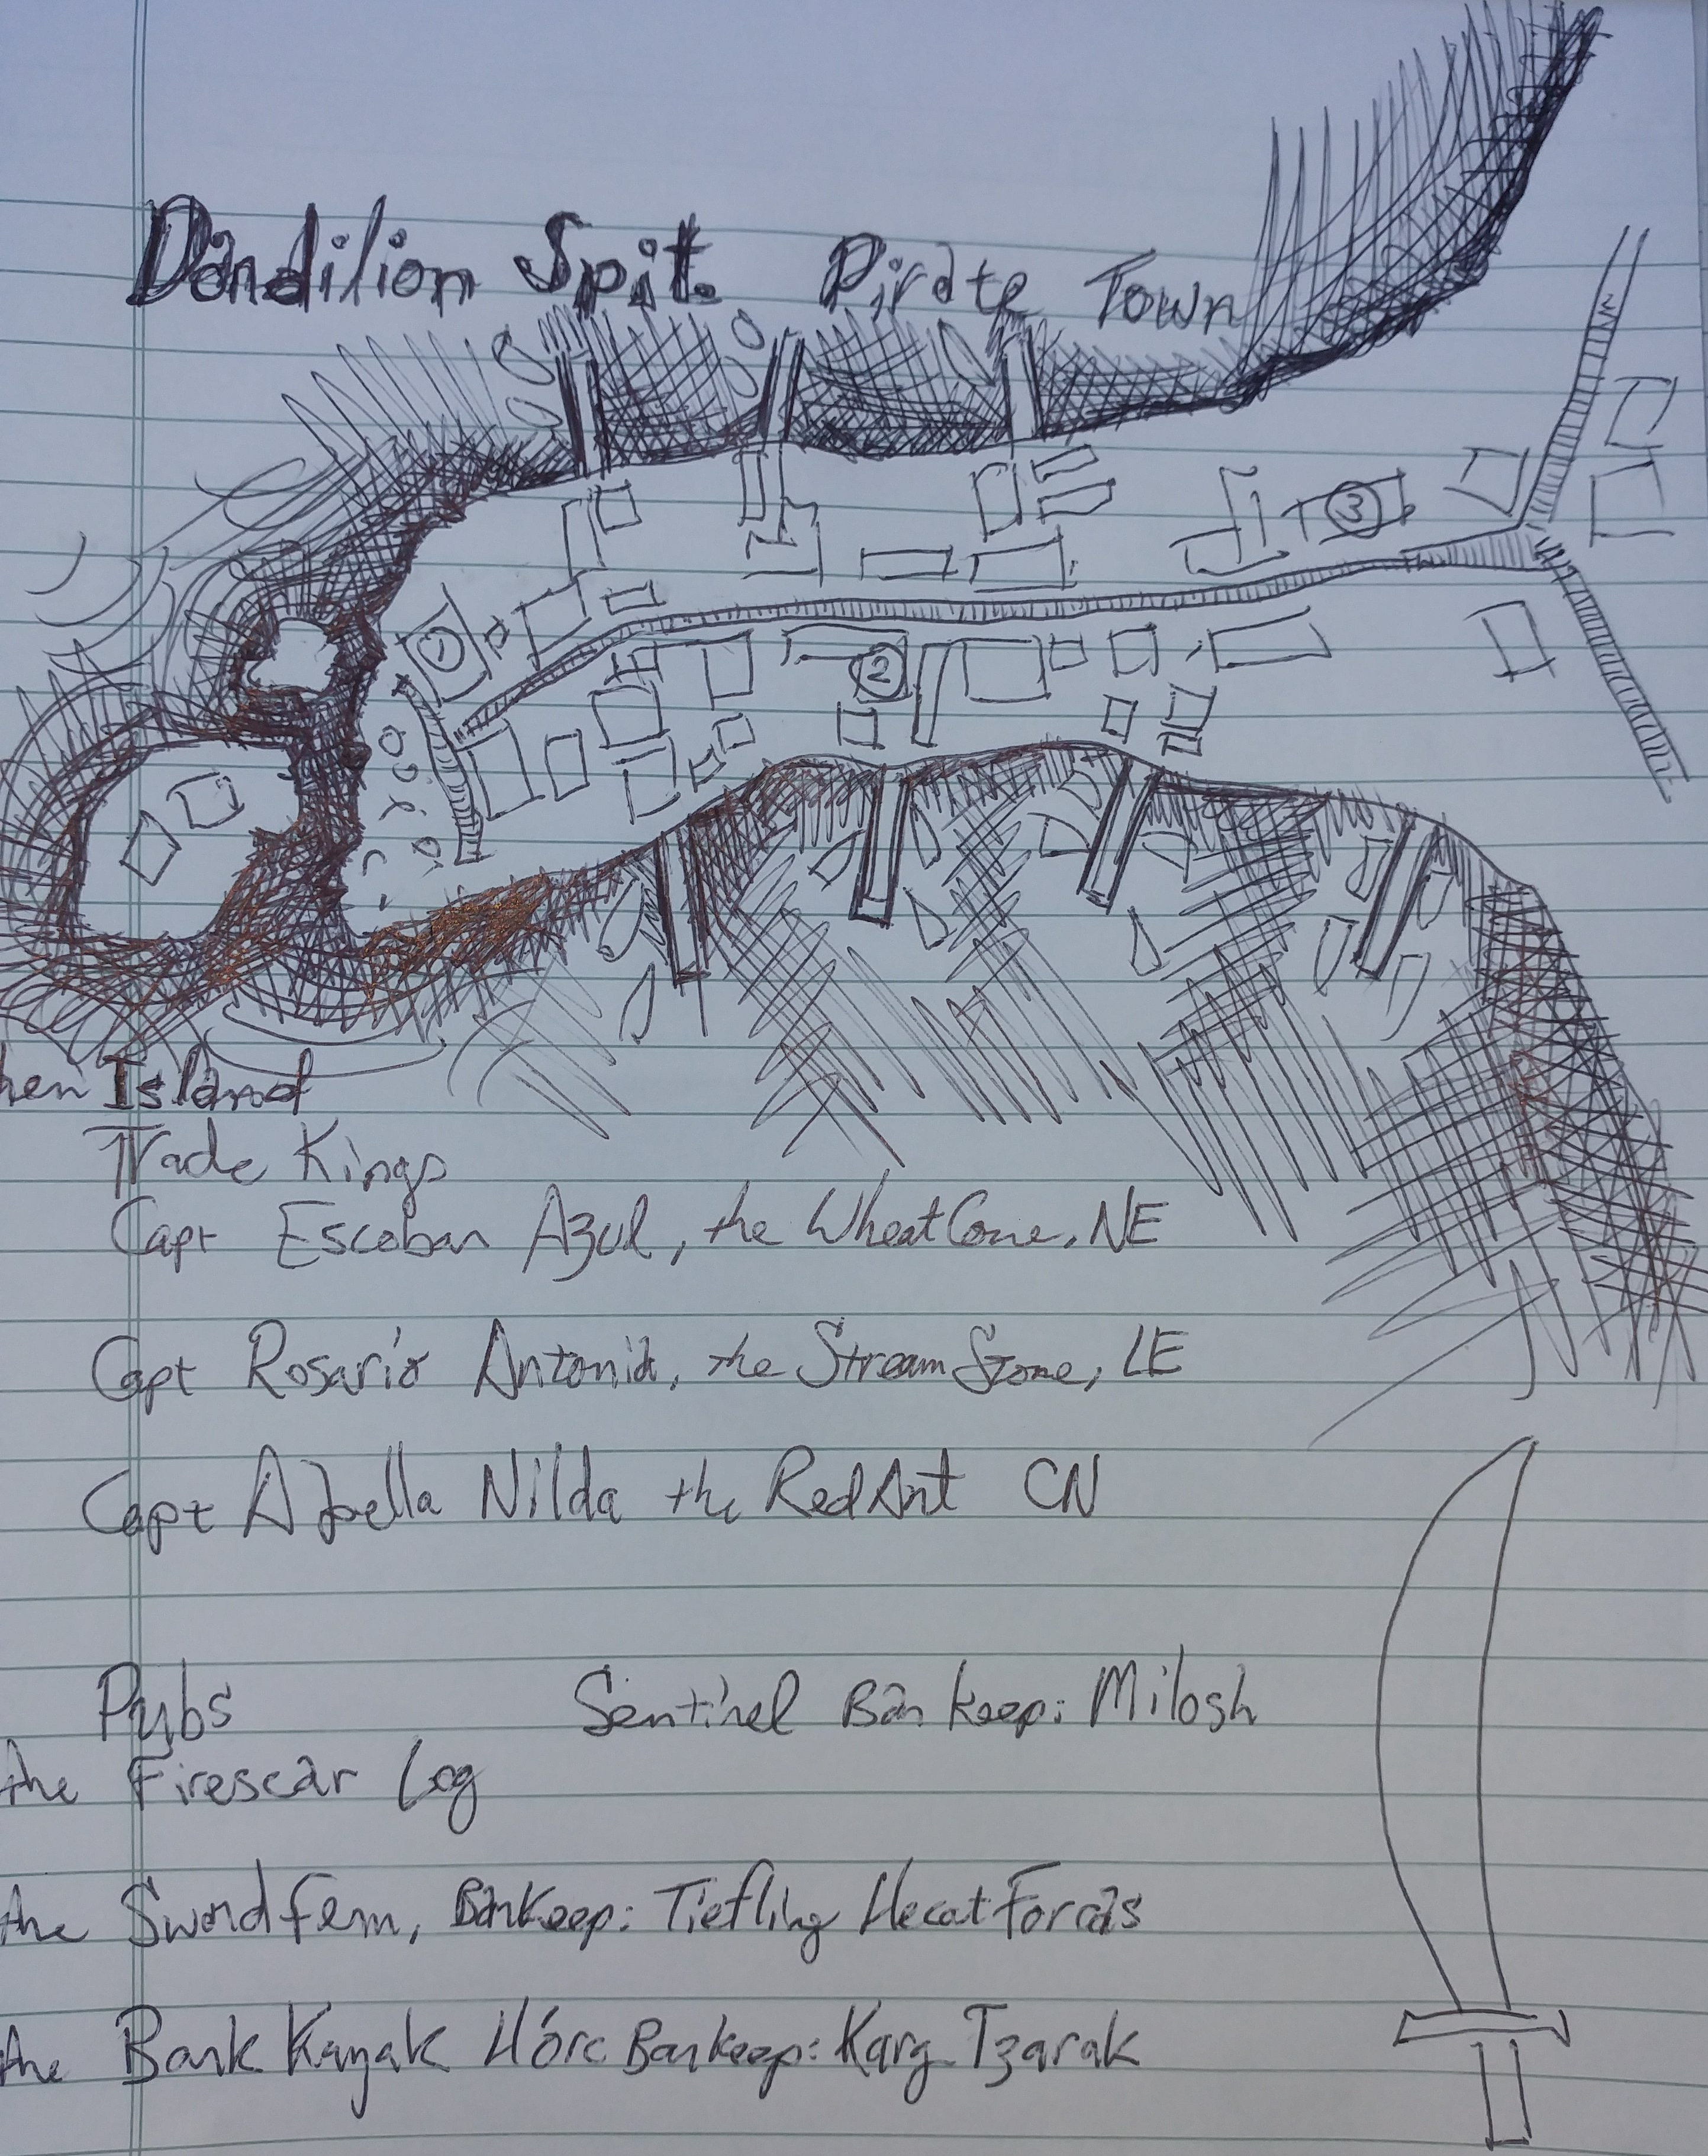 Dandilion Spit. Pirate Town
1
2
3
hen Island
Trade Kings
Capt Escoban Azul, the Wheat Cone, NE
Capt Rosario Antonia, the Stream Stone, LE
Capt Nilda the Red Ant CN
Pubs Sentinel Barkeep: Milosh
the Firescar Log
the Sword fern, Barkeep: Tiefling Hecat Forcas
the Bark Kayak H'orc Barkeep: Karg Tzarak